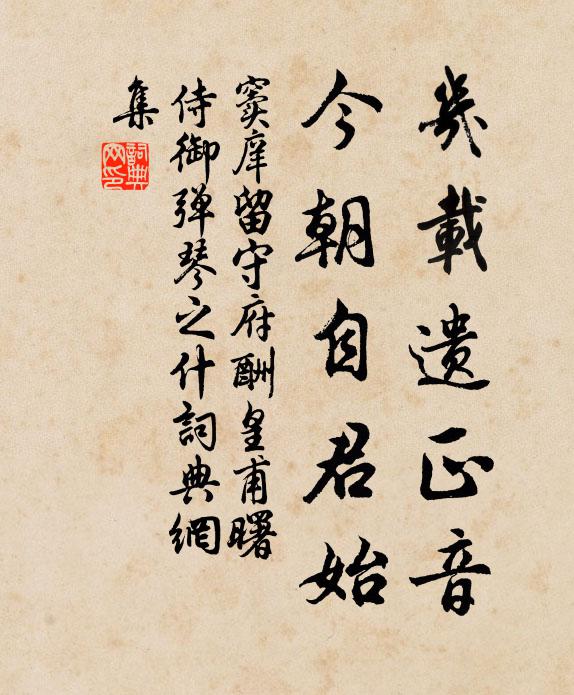 幾載遺正音
今朝自君始
竇庠留守府酬皇甫曙
侍御弹琴之什詞典網
集
詞典
网印